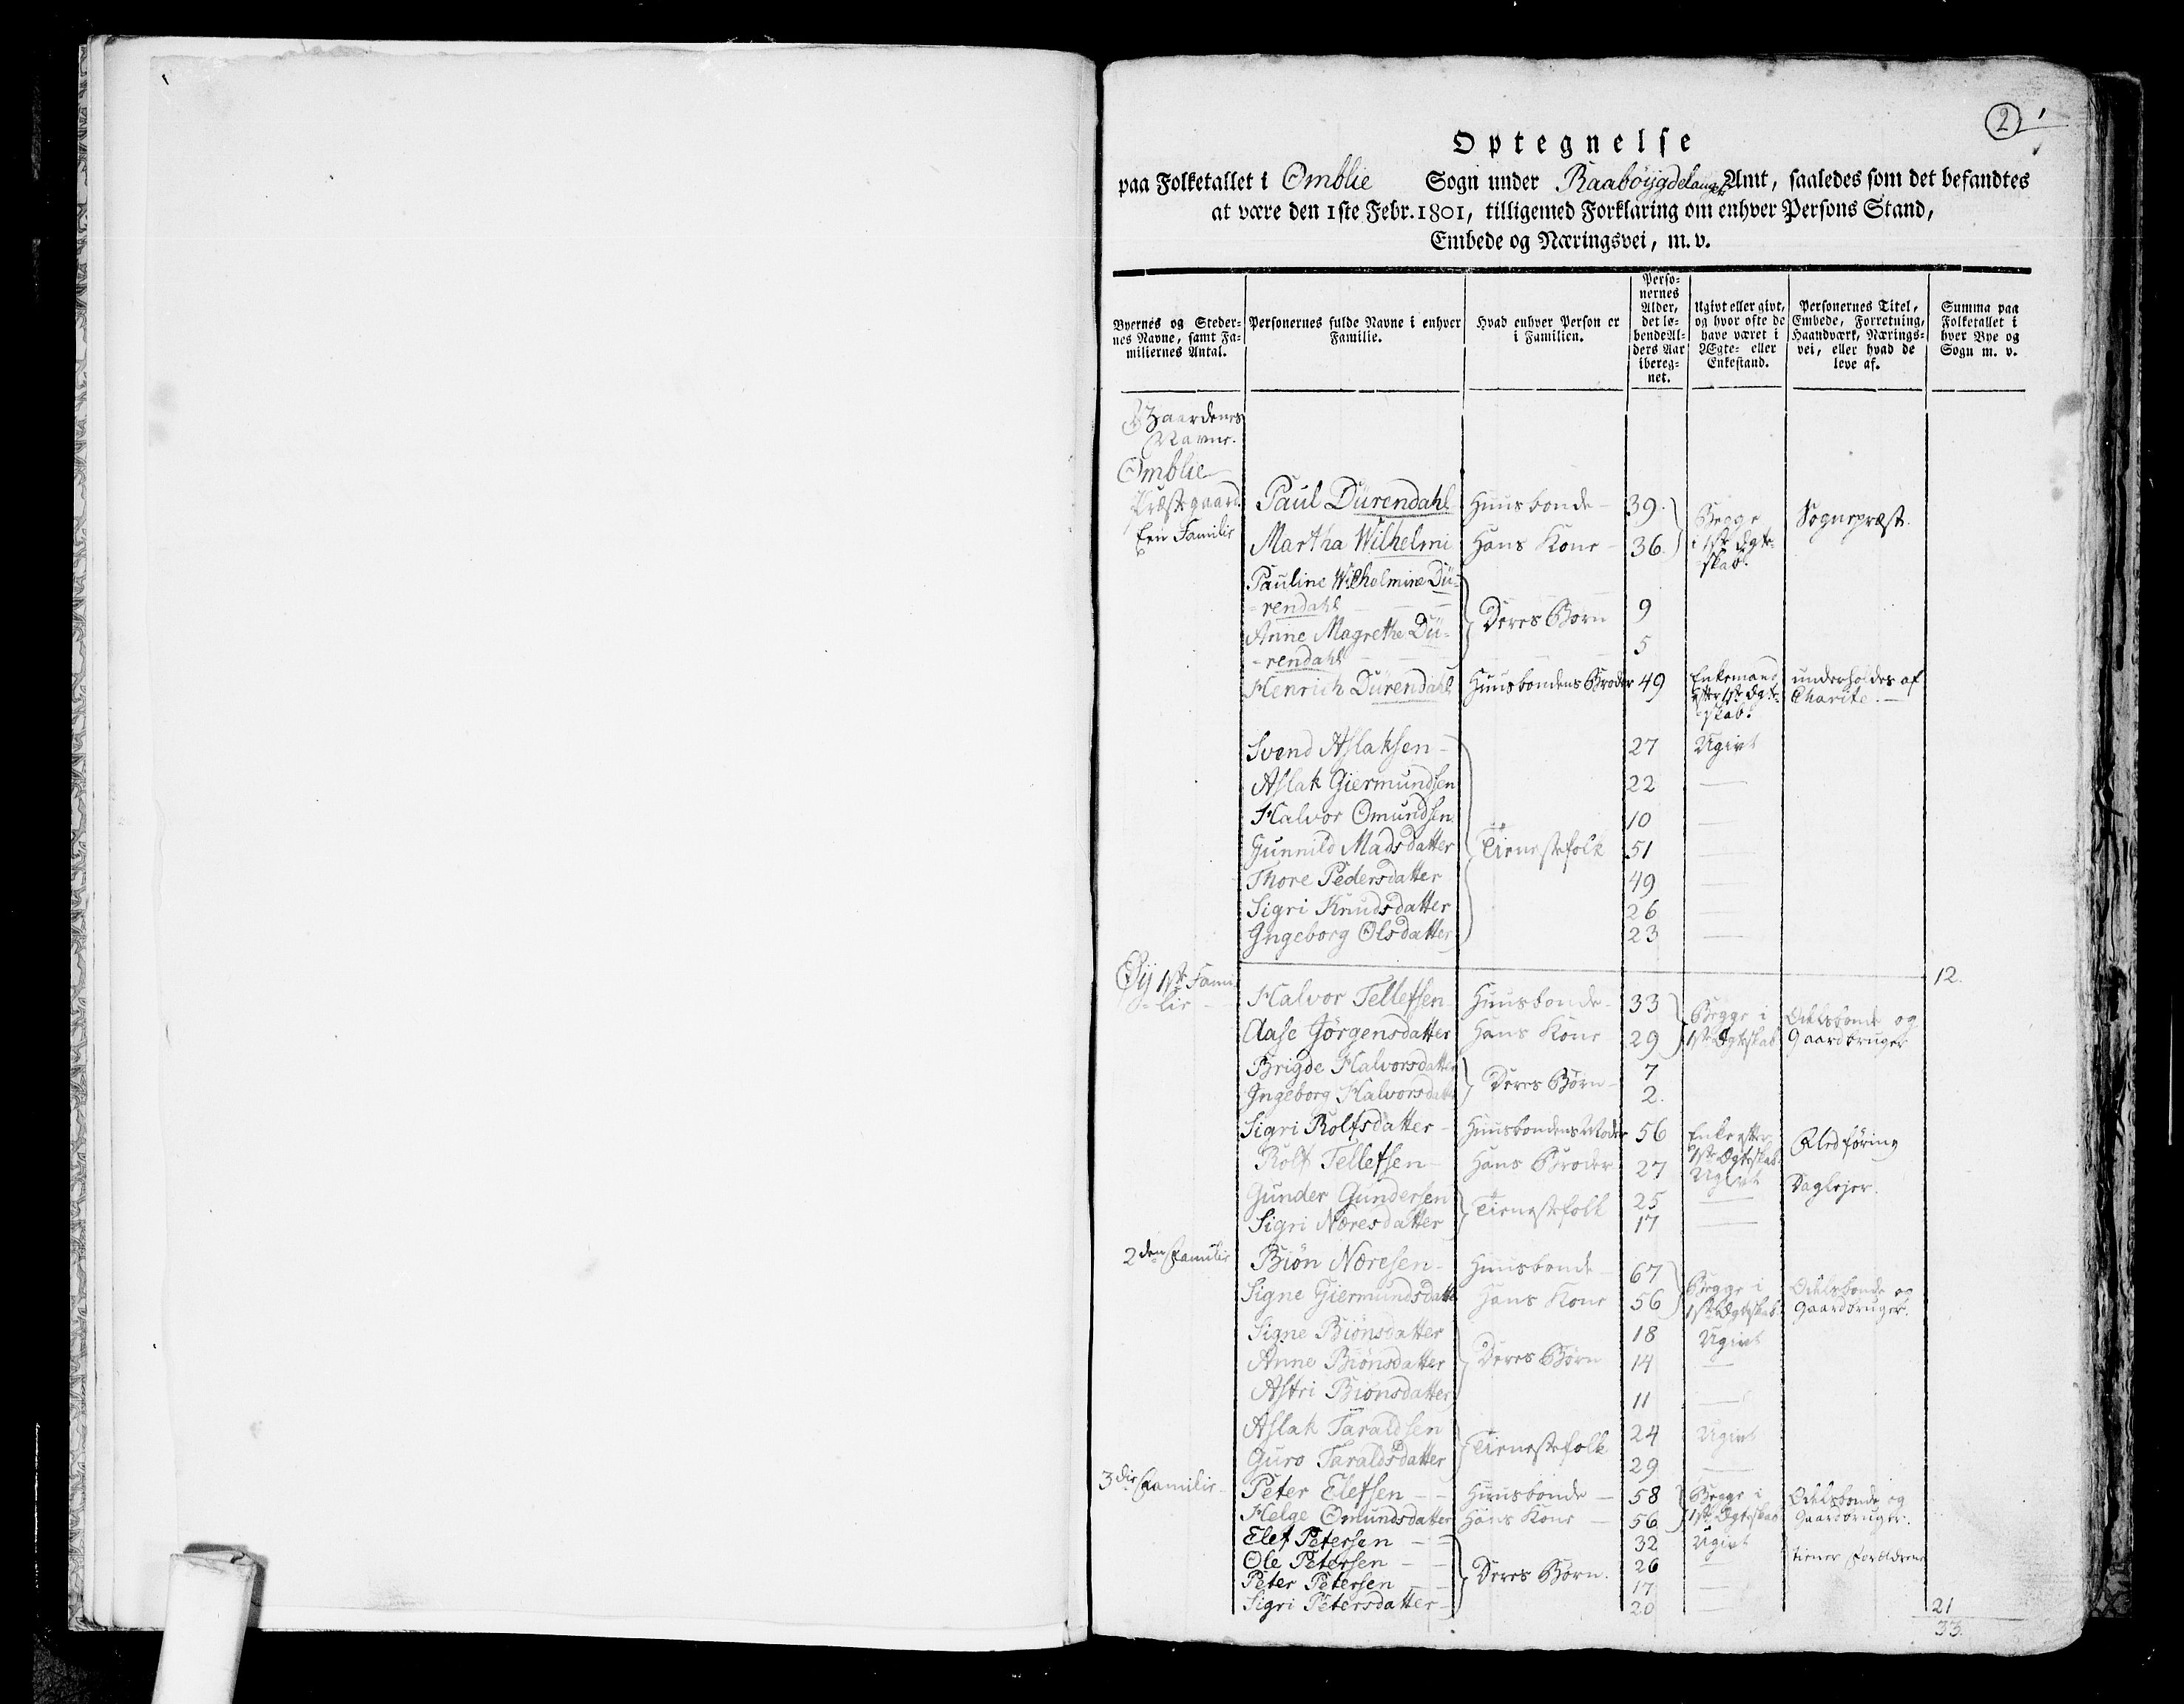 2 1
Optegnelse
paa Folketallet i Omblie Sogn under Raabøijgdelaugets Amt, saaledes som det befandtes
at være den 1ste Febr. 1801, tilligemed Forklaring om enhver Persons Stand,
Embede og Næringsvei, m. v.
Byernes og Steder-
nes Navne, samt Fa-
miliernes Antal.
Personernes fulde Navne i enhver
Familie.
Hvad enhver Person er
i Familien.
Perso-
nernes
Alder,
det lø-
bende Al-
ders Aar
ibereg-
net.
Ugivt eller givt,
og hvor ofte de
have været i
Ægte- eller
Enkestand.
Personernes Titel,
Embede, Forretning,
Haandværk, Nærings-
vei, eller hvad de
leve af.
Summa paa
Folketallet i
hver Bye og
Sogn m. v.
Gaardenes
Navne.
Omblie
Præstegaard Paul Dürendahl Huusbonde 39. Begge Sognepræst.
Een Familie Martha Wilhelmi Hans Kone 36. i 1ste Ægte-
skab.
Pauline Wilhelmine Dü-
rendahl Deres Børn 9
Anne Magrethe Dü-
rendahl 5
Henrich Dürendahl Huusbondens Broder 49 Enkemand underholdes af
efter 1ste Ægte- Charite.
skab.
Svend Aslaksen 27 Ugivt
Aslak Giermundsen 22 —
Halvor Omundsen 10 —
Gunnild Madsdatter Tienestefolk 51 —
Thore Pedersdatter 49 —
Sigri Knudsdatter 26 —
Ingeborg Olsdatter 23 —
12.
Øij 1ste Fami-
lie Halvor Tellefsen Huusbonde 33 Begge i Odelsbonde og
Aase Jörgensdatter Hans Kone 29 1ste Ægteskab Gaardbruger
Brigde Halvorsdatter Deres Børn 7
Ingeborg Halvorsdatter 2.
Sigri Rolfsdatter Huusbondens Moder 56 Enke efter Fledføring
1ste Ægteskab
Rolf Tellefsen Hans Broder 27 Ugivt Daglejer.
Gunder Gundersen Tienestefolk 25 —
Sigri Næresdatter 17 —
2den Familie Biön Næresen Huusbonde 67 Begge i Odelsbonde og
Signe Giermundsdatter Hans Kone 56 1ste Ægteskab Gaardbruger.
Signe Biönsdatter 18 Ugivt
Anne Biönsdatter Deres Børn 14 —
Astri Biönsdatter 11 —
Aslak Taraldsen Tienestefolk 24 Ugivt
Guro Taraldsdatter 29 —
3die Familie Peter Elefsen Huusbonde 58 Begge i Odelsbonde og
Helge Omundsdatter Hans Kone 56 1ste Ægteskab Gaardbruger.
Elef Petersen 32 Ugivt
Ole Petersen Deres Børn. 26 — tiener Forældrene
Peter Petersen 17 —
Sigri Petersdatter 20 — 21
33.